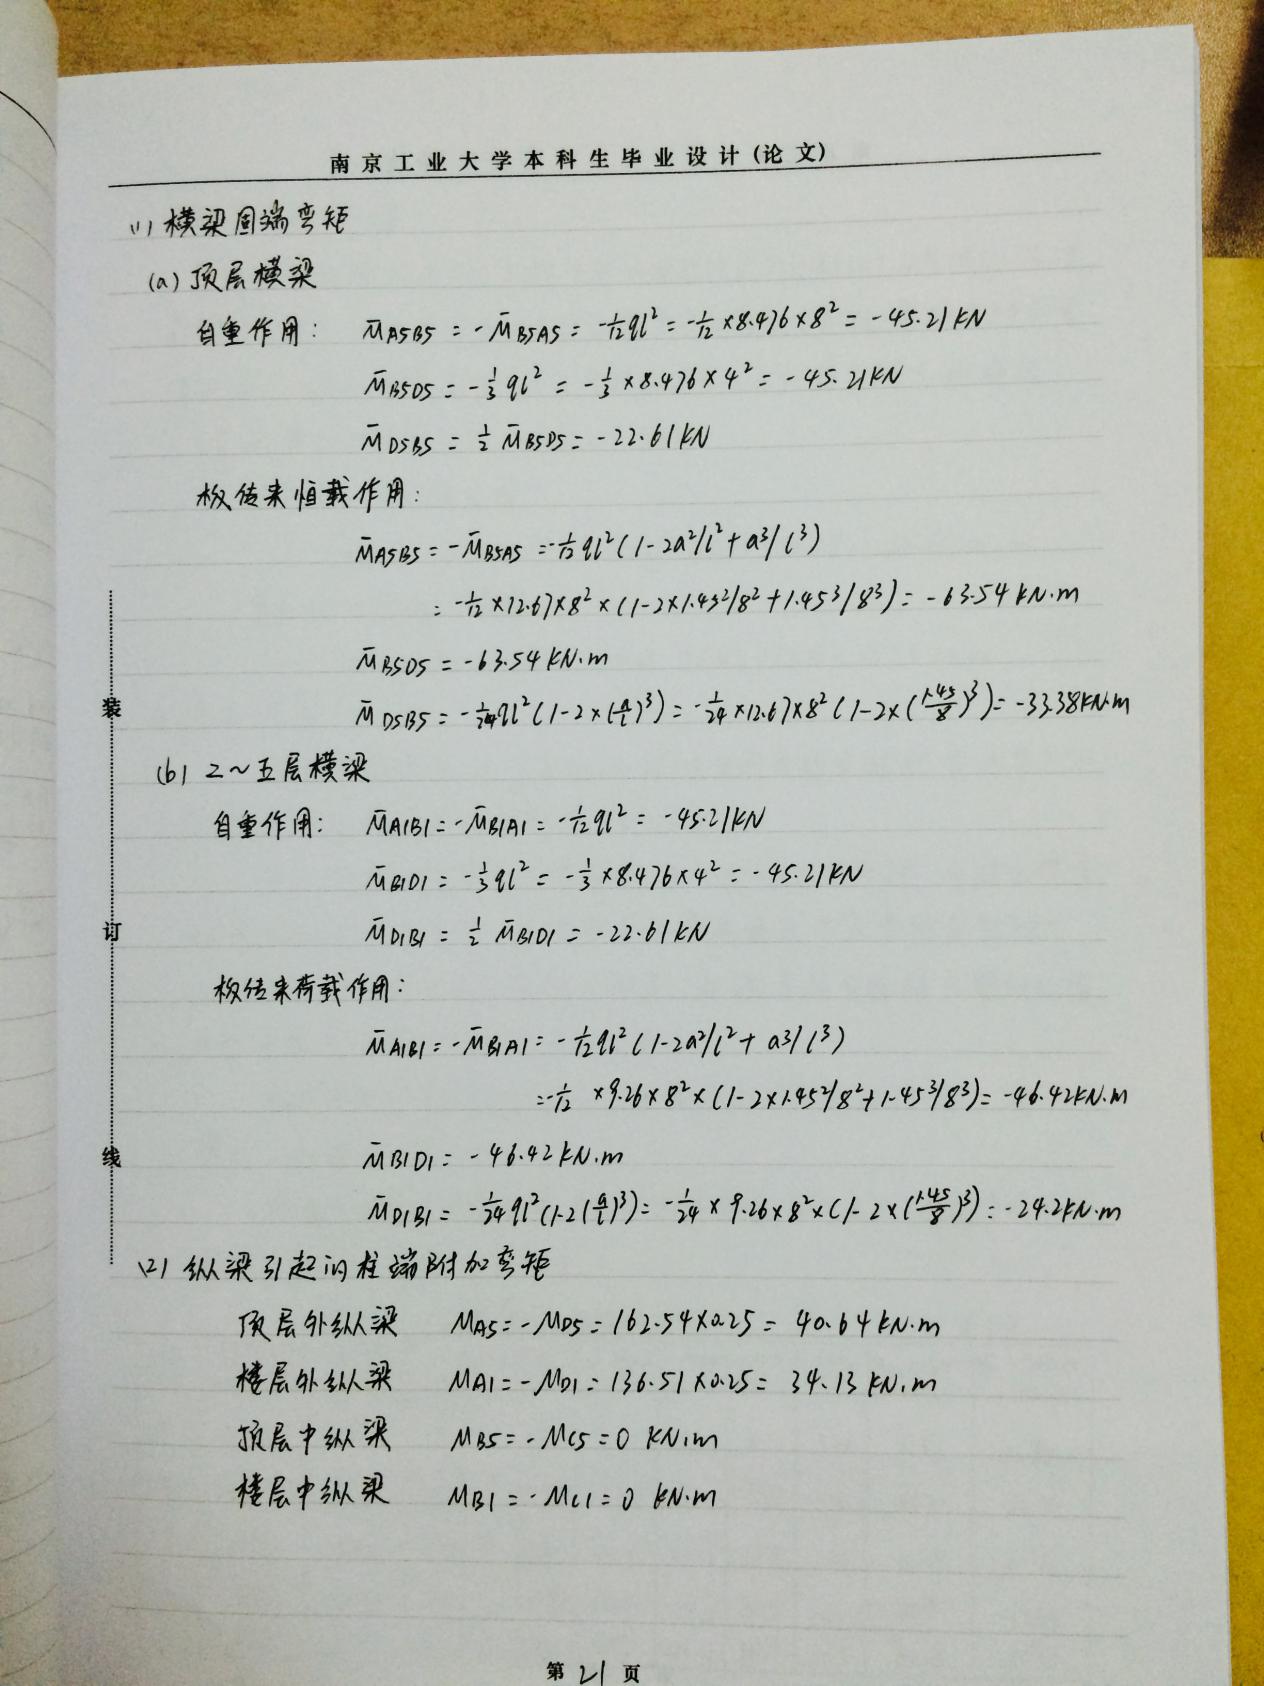 南京工业大学本科生毕业设计(论文)
(1) 横梁固端弯矩
(a) 顶层横梁
自重作用: M̄A5B5 = -M̄B5A5 = -1/12 ql² = -1/12 ×8.476×8² = -45.21KN
M̄B5D5 = -1/3 ql² = -1/3 ×8.476×4² = -45.21KN
M̄D5B5 = 1/2 M̄B5D5 = -22.61KN
板传来恒载作用:
M̄A5B5 = -M̄B5A5 = -1/12 ql²(1-2a²/l²+a³/l³)
= -1/12 ×12.67×8²×(1-2×1.45²/8²+1.45³/8³) = -63.54 KN.m
M̄B5D5 = -63.54 KN.m
M̄D5B5 = -1/24 ql²(1-2×(a/l)³) = -1/24 ×12.67×8²(1-2×(1.45/8)³) = -33.38KN.m
(b) 二~五层横梁
自重作用: M̄A1B1 = -M̄B1A1 = -1/12 ql² = -45.21KN
M̄B1D1 = -1/3 ql² = -1/3 ×8.476×4² = -45.21KN
M̄D1B1 = 1/2 M̄B1D1 = -22.61KN
板传来荷载作用:
M̄A1B1 = -M̄B1A1 = -1/12 ql²(1-2a²/l²+a³/l³)
= -1/12 ×9.26×8²×(1-2×1.45²/8²+1.45³/8³) = -46.42KN.m
M̄B1D1 = -46.42 KN.m
M̄D1B1 = -1/24 ql²(1-2(a/l)³) = -1/24 ×9.26×8²×(1-2×(1.45/8)³) = -24.2KN.m
(2) 纵梁引起的柱端附加弯矩
顶层外纵梁 MA5=-MD5=162.54×0.25= 40.64KN.m
楼层外纵梁 MA1=-MD1=136.51×0.25= 34.13 KN.m
顶层中纵梁 MB5=-MC5=0 KN.m
楼层中纵梁 MB1=-MC1=0 KN.m
装
订
线
第 21 页